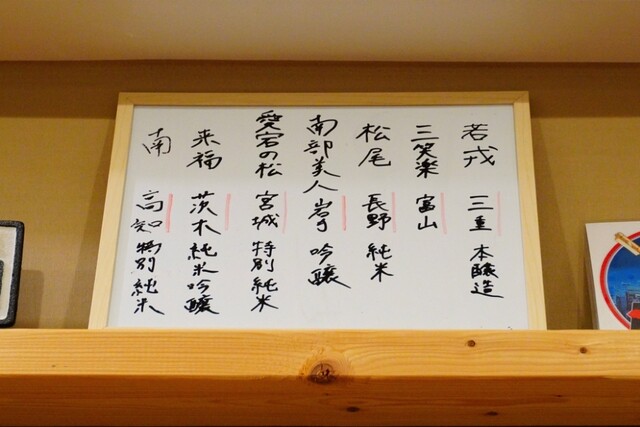 若戎 三重 本醸造
三笑楽 富山
松尾 長野 純米
南部美人 岩手 吟醸
愛宕の松 宮城 特別純米
来福 茨木 純米吟醸
南 高知 特別純米